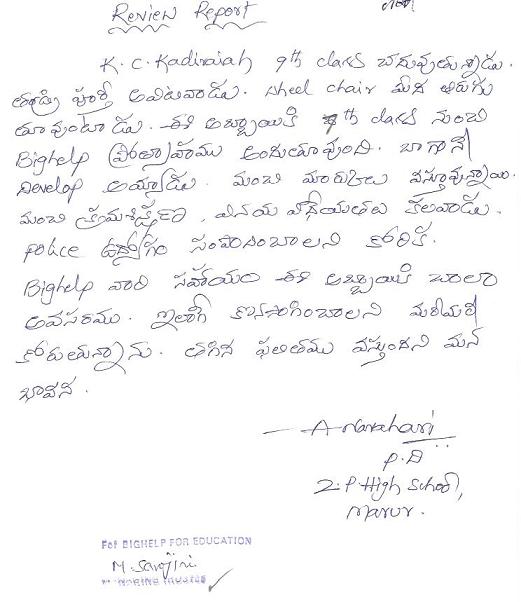 Review Report
K. C. Kadiraiah 9th class చదువుతున్నాడు.
తండ్రి పూర్తి అవిటివాడు. Wheel chair మీద తిరుగు
తూవుంటాడు. ఈ అబ్బాయికి 7th class నుంచి
Bighelp ప్రోత్సాహము అందుతూవుంది. బాగానే
Develop అయ్యాడు. మంచి మార్కులు వస్తూవున్నాయి.
మంచి క్రమశిక్షణ, వినయ విధేయతలు కలవాడు.
Police ఉద్యోగం సంపాదించాలని కోరిక.
Bighelp వారి సహాయం ఈ అబ్బాయికి చాలా
అవసరము. ఇలాగే కొనసాగించాలని మరీమరీ
కోరుతున్నాను. తగిన ఫలితము వస్తుందని మన
భావన.
A Narahari
P.D
Z.P High School,
Marur.
For BIGHELP FOR EDUCATION
M. Sarojini